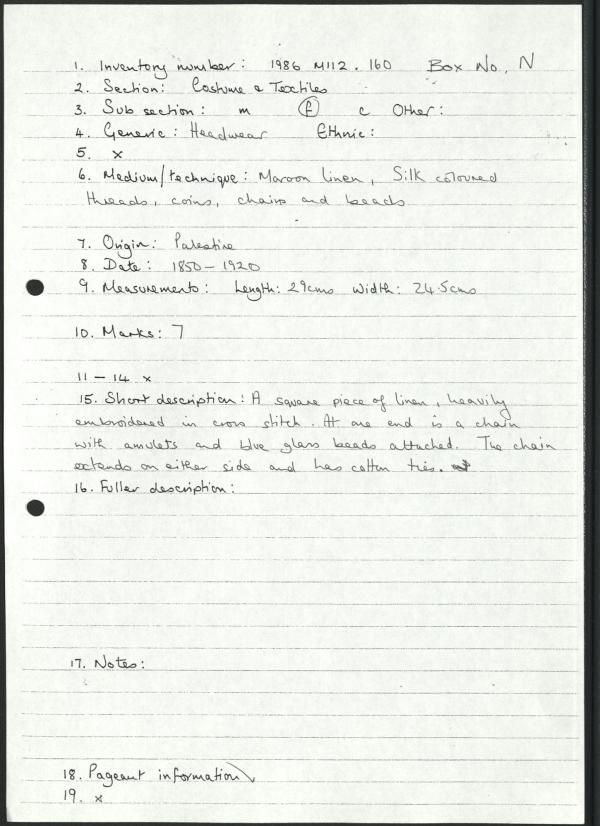 1. Inventory number: 1986 M112.160 Box No. N
2. Section: Costume & Textiles
3. Sub section: m f c Other:
4. Generic: Headwear Ethnic:
5. x
6. Medium/technique: Maroon linen, Silk coloured
threads, coins, chains and beads
7. Origin: Palestine
8. Date: 1850-1920
9. Measurements: Length: 29cms Width: 24.5cms
10. Marks: 7
11-14 x
15. Short description: A square piece of linen, heavily
embroidered in cross stitch. At one end is a chain
with amulets and blue glass beads attached. The chain
extends on either side and has cotton ties.
16. Fuller description:
17. Notes:
18. Pageant information
19. x